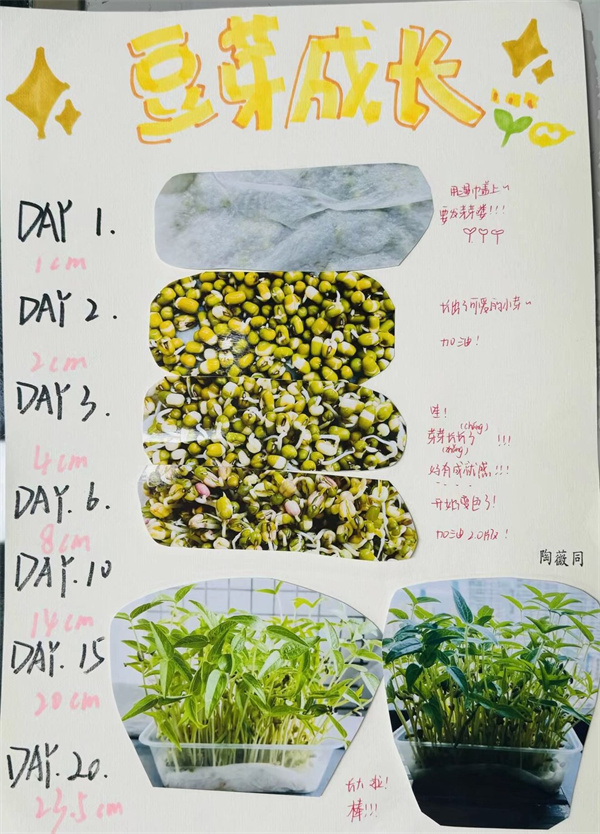 豆芽成长
DAY 1.
1cm
用湿巾盖上~
要发芽喽!!!
DAY 2.
2cm
长出了可爱的小芽~
加油!
DAY 3.
4cm
哇!
(cháng)
芽芽长长了 !!!
(zhǎng)
好有成就感!!!
DAY. 6.
8cm
开始变色了!
加油 2.0版!
陶薇同
DAY. 10
14cm
DAY. 15
20cm
DAY. 20.
23.5cm
长大啦!
棒!!!